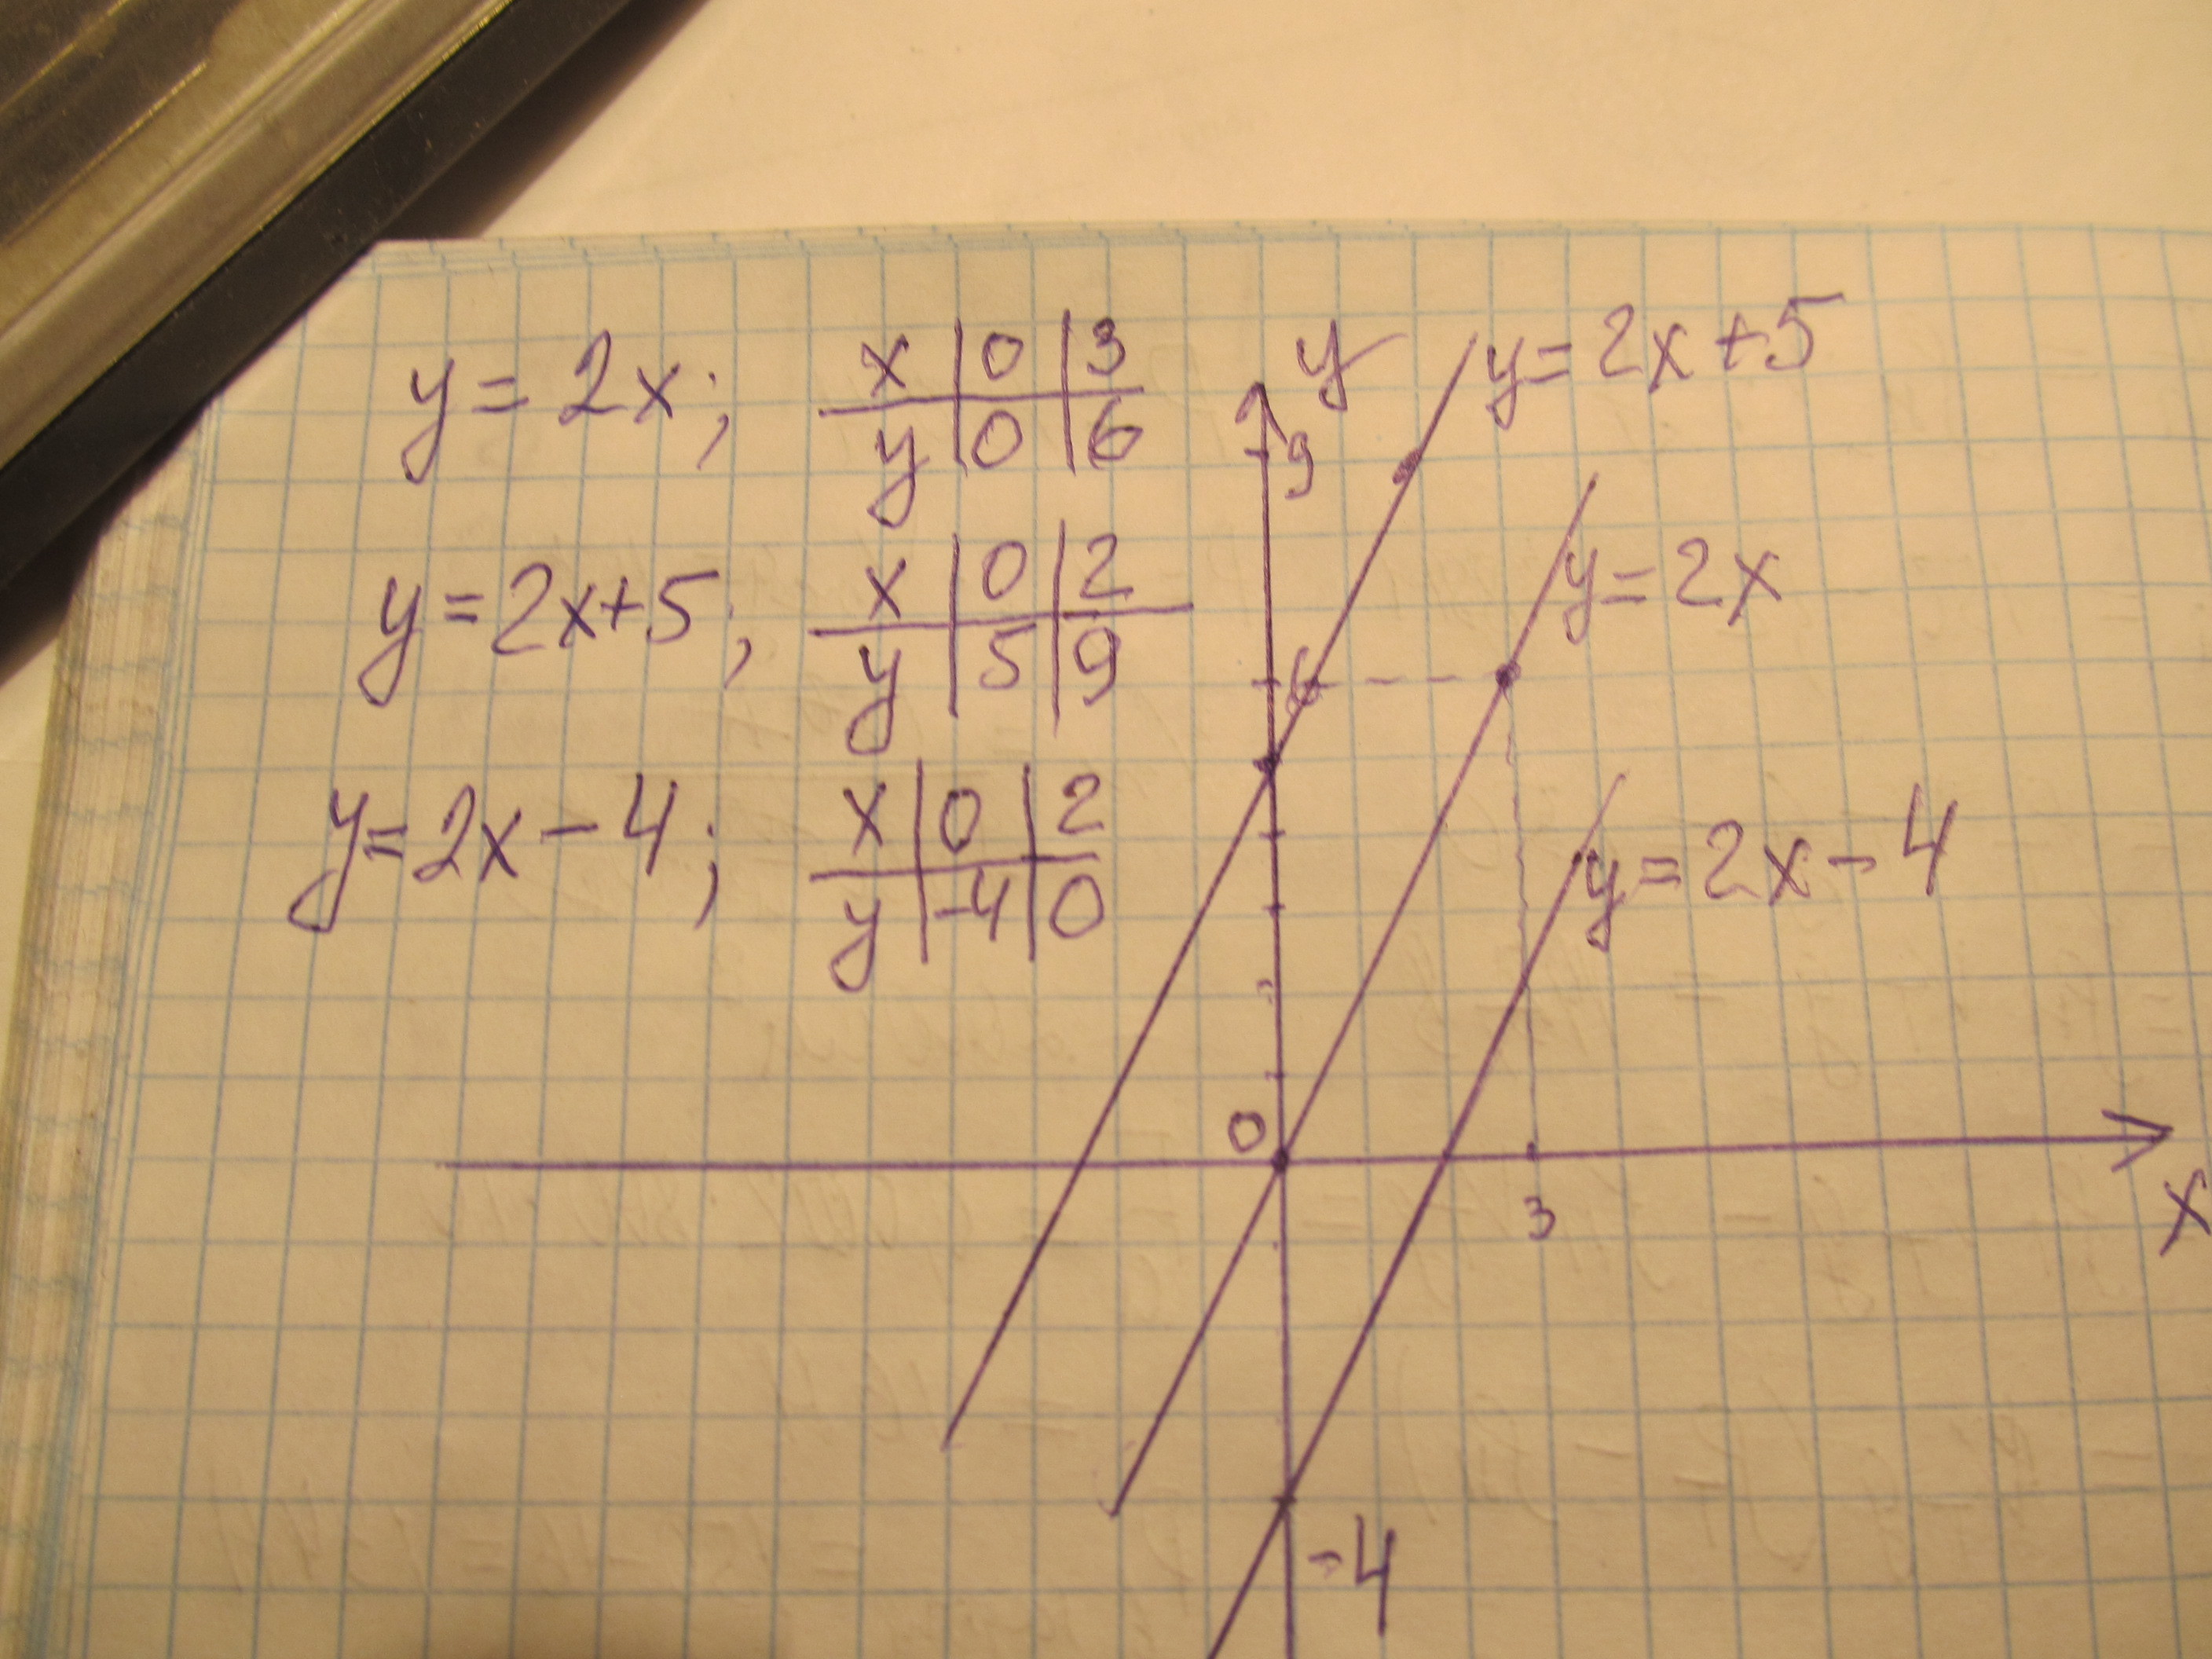 y = 2x; x | 0 | 3
y | 0 | 6
y = 2x+5; x | 0 | 2
y | 5 | 9
y = 2x - 4; x | 0 | 2
y | -4 | 0
y
y = 2x+5
9
y = 2x
6
y = 2x - 4
0
3
x
-4